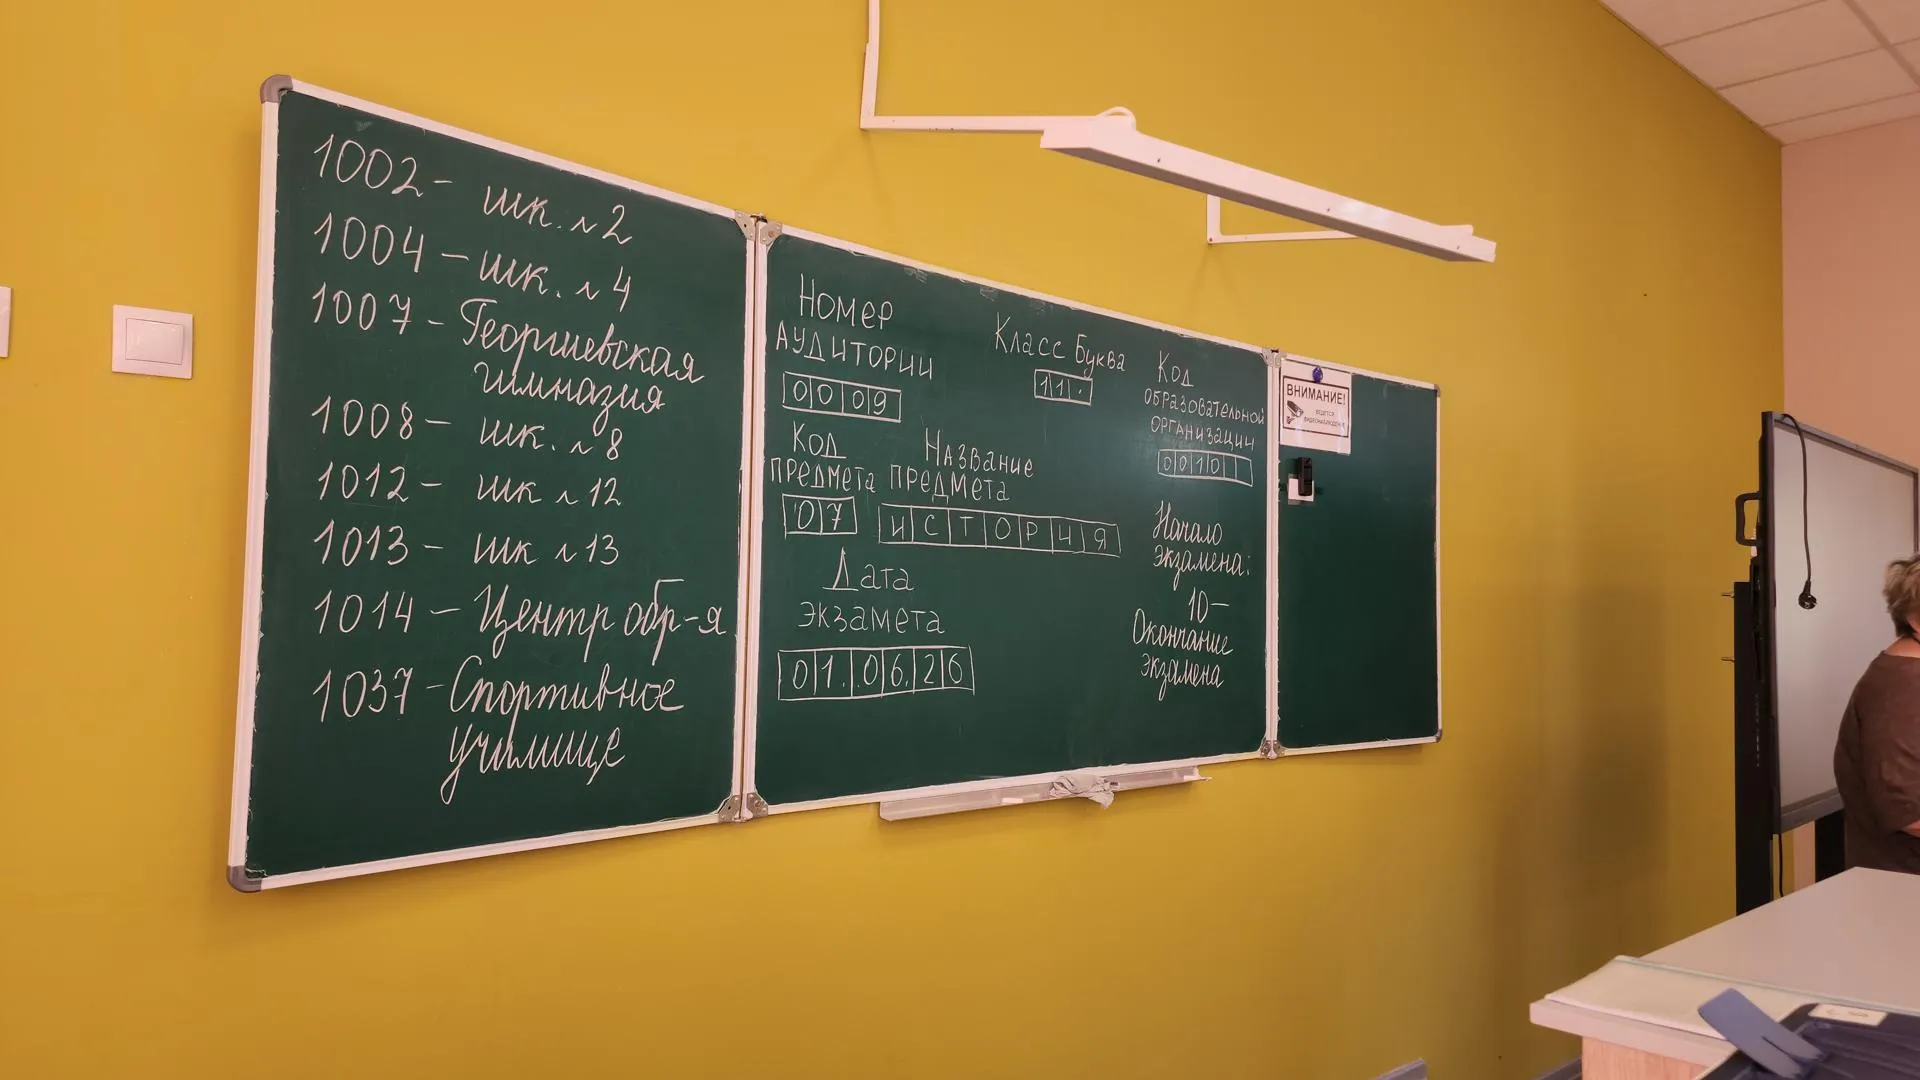 1002 - шк. №2
1004 - шк. №4
1007 - Георгиевская
гимназия
1008 - шк. №8
1012 - шк №12
1013 - шк №13
1014 - Центр обр-я
1037 - Спортивное
училище
Номер
аудитории
0009
Класс Буква
11.
Код
образовательной
организации
0010
Код
предмета
07
Название
предмета
ИСТОРИЯ
Дата
экзамета
01.06.26
Начало
экзамена:
10-
Окончание
экзамена
ВНИМАНИЕ!
ВЕДЕТСЯ
ВИДЕОНАБЛЮДЕНИЕ